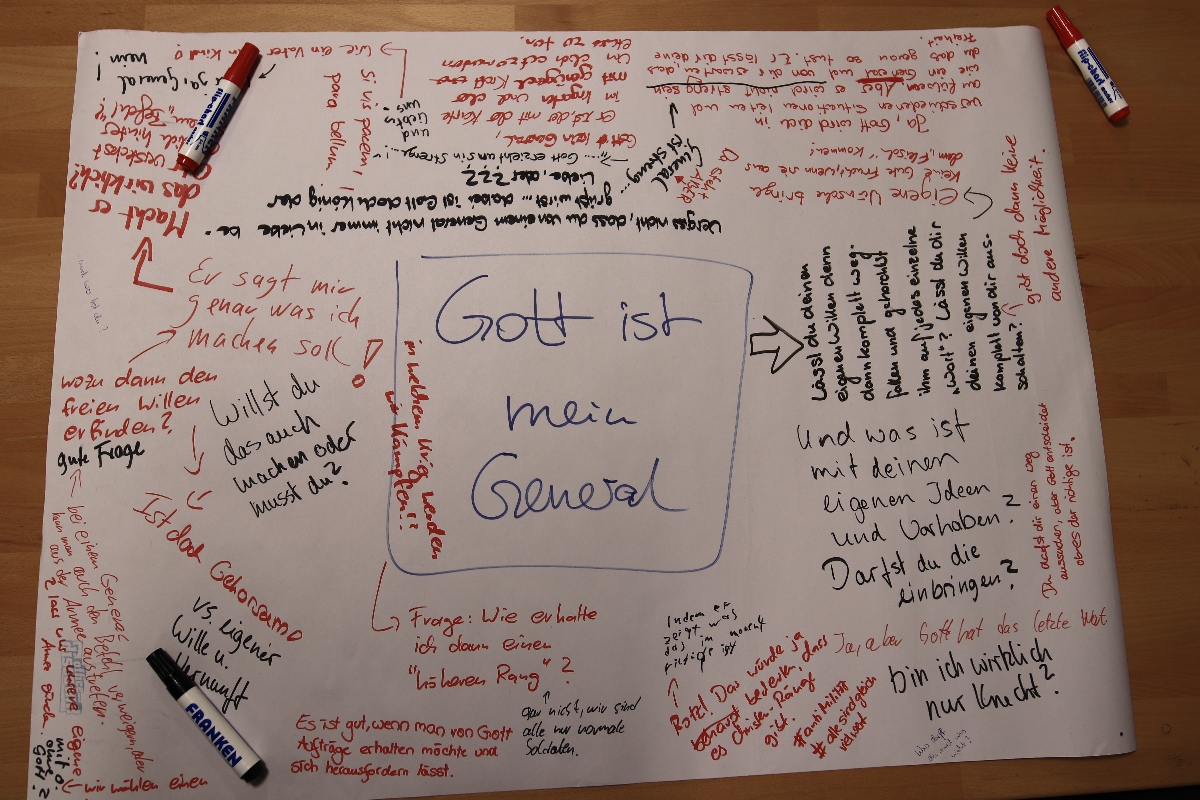 Gott ist
mein
General
in welchem Krieg werden
wir kämpfen!?
Er sagt mir
genau was ich
machen soll
Macht er
das wirklich?
wozu dann den
freien Willen
erfinden?
gute Frage
Willst du
das auch
machen oder
musst du?
Ist doch Gehorsam
vs. eigener
Wille u.
Vernunft
bei einem General
kann man auch den Befehl verweigern, oder
aus der Armee austreten.
wir wählen einen
Frage: Wie erhalte
ich dann einen
"höheren Rang"?
gar nicht, wir sind
alle nur normale
Soldaten.
Es ist gut, wenn man von Gott
Aufträge erhalten möchte und
sich herausfordern lässt.
Indem er
zeigt was
das im moment
richtige ist
Rofel Das würde ja
behaupt bedeuten, dass
es Christen. Ränge
gibt.
#antimilitär
#alle sind gleich
viel wert
Lässt du deinen
eigenen Willen denn
dann komplett weg-
fallen und gehorchst
ihm auf jedes einzelne
Wort"? Lässt du dir
deinen eigenen willen
komplett von dir aus-
schalten?
gibt doch dann keine
andere möglichkeit.
Und was ist
mit deinen
eigenen Ideen
und Vorhaben?
Darfst du die
einbringen?
Du darfst dir einen weg
aussuchen, aber Gott entscheidet
ob es der richtige ist.
Ja, aber Gott hat das letzte Wort
bin ich wirklich
nur Knecht?
Vergiss nicht, dass du von einem General nicht immer in Liebe be-
grüßt wirst... dabei ist Gott doch König der
Liebe, oder ???
"...." Gott erzieht uns in Strenge..."!
General
ist streng...
ABER
Gott ist kein General,
Er ist der mit der Karte
im Ingarten und der
mit genügend Kraft
um dich aufzumuntern
etwas zu tun.
Ja, Gott wird dich in
verschiedenen Situationen leiten und
führen. Aber es wird nicht streng sein
wie ein General und von dir erwarten, dass
du das genau so tust. Er lässt dir deine
Freiheit.
Eigene Wünsche bringen
keine gute Frucht, wenn sie aus
dem "Fleisch" kommen!
Si vis pacem
para bellum
Wie ein Vater
Kind!
und
liebt
uns
ja General
nein
FRANKEN